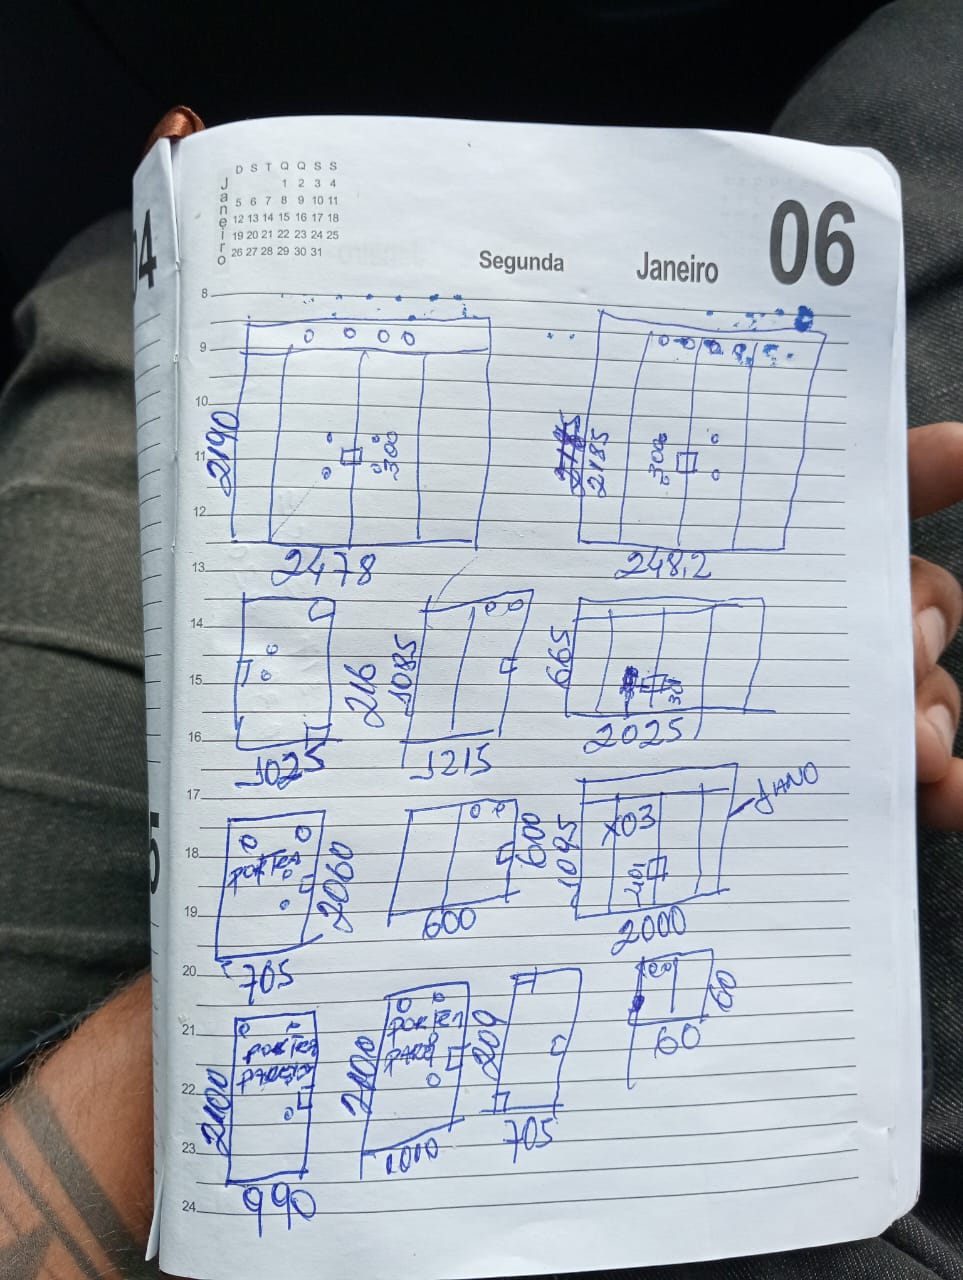 04
D S T Q Q S S
Janeiro
1 2 3 4
5 6 7 8 9 10 11
12 13 14 15 16 17 18
19 20 21 22 23 24 25
26 27 28 29 30 31
Segunda Janeiro 06
8
9
10
11
12
13
14
15
16
17
18
19
20
21
22
23
24
2190
300
2478
2185
300
248,2
216
1025
1085
1215
665
2025
PORTA
2060
705
600
600
1095
X03
2000
2100
990
2100
1000
209
705
60
60